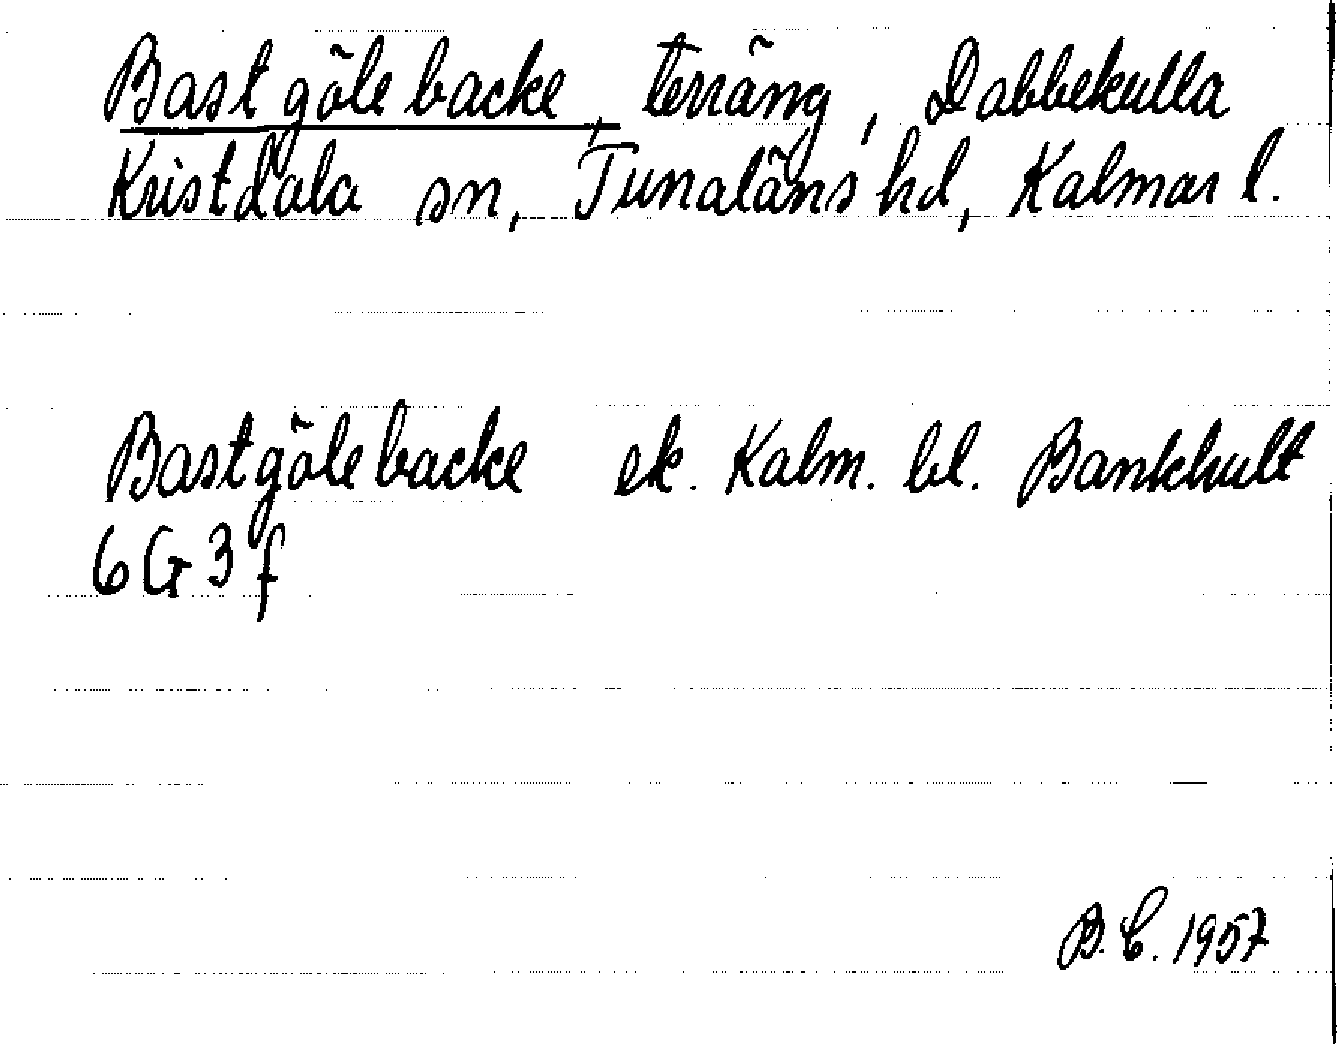 Bastgölebacke, terräng, Dabbekulla
Kristdala sn, Tunaläns hd, Kalmar l.
Bastgölebacke ek. Kalm. bl. Bankhult
6G3f
B.C. 1957